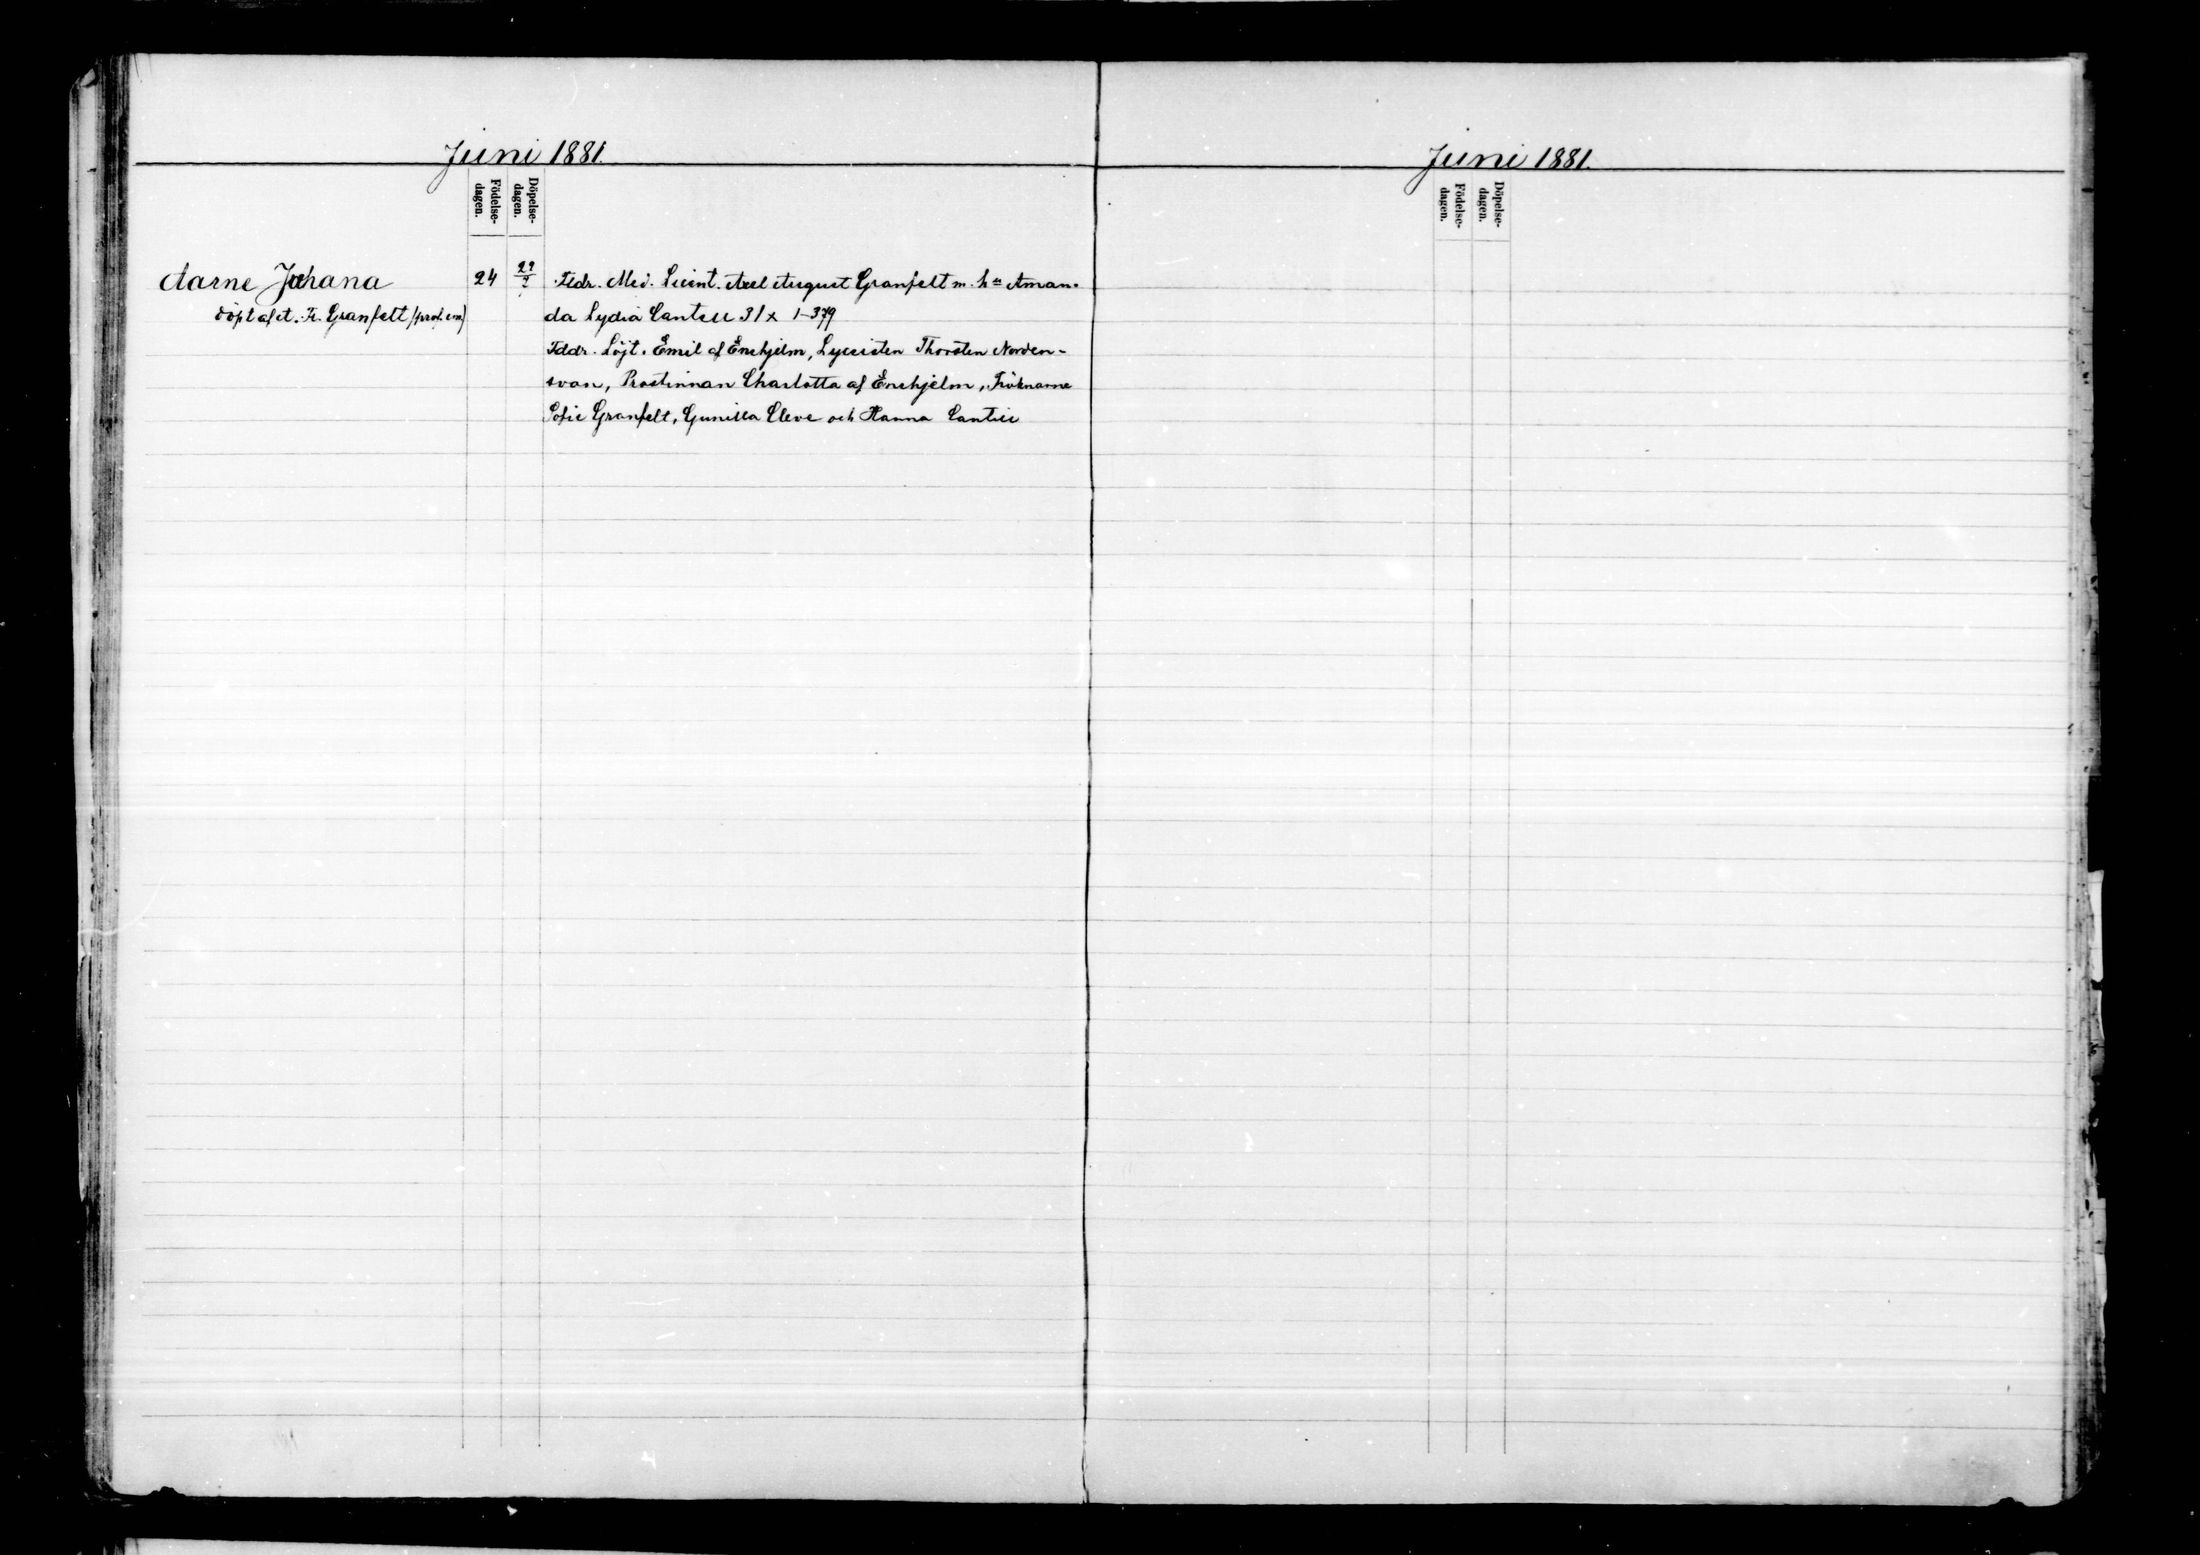 Juni 1881.
Födelse-
dagen.
Döpelse-
dagen.
Aarne Johana 24 29/7 Fldr. Med. Licent. Axel August Granfelt m. h:u Aman-
döpt af A. Fr. Granfelt (prof. em)
da Lydia Cantell 31 x 1-379
Fddr. Löjt. Emil af Enehjelm, Lyceisten Thorsten Norden-
svan, Prostinnan Charlotta af Enehjelm, Fröknarne
Sofie Granfelt, Gunilla Cleve och Hanna Cantell
Juni 1881.
Födelse-
dagen.
Döpelse-
dagen.